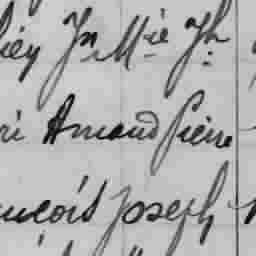 iey Jn Mie Jh
ri Amand Pierre
nçois Joseph